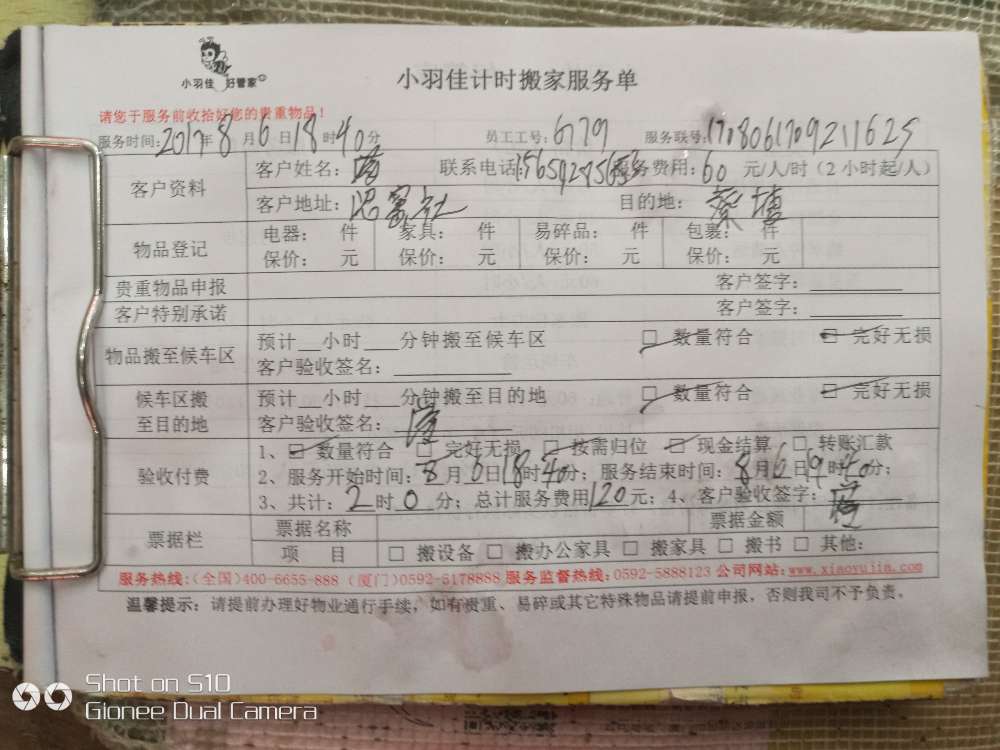 小羽佳 好管家
小羽佳计时搬家服务单
请您于服务前收拾好您的贵重物品!
服务时间:2017年8月6日18时40分 员工工号:6779 服务联号:1708061709211625
客户资料
客户姓名: 联系电话: 服务费用:60元/人/时(2小时起/人)
客户地址: 目的地:蔡塘
物品登记
电器: 件 家具: 件 易碎品: 件 包裹: 件
保价: 元 保价: 元 保价: 元 保价: 元
贵重物品申报 客户签字:
客户特别承诺 客户签字:
物品搬至候车区
预计__小时___分钟搬至候车区 □ 数量符合 □ 完好无损
客户验收签名:
候车区搬至目的地
预计__小时___分钟搬至目的地 □ 数量符合 □ 完好无损
客户验收签名:
验收付费
1、□ 数量符合 □ 完好无损 □ 按需归位 □ 现金结算 □ 转账汇款
2、服务开始时间:8月6日18时40分;服务结束时间:8月6日19时40分;
3、共计:2时0分;总计服务费用120元;4、客户验收签字:
票据栏
票据名称 票据金额
项 目 □ 搬设备 □ 搬办公家具 □ 搬家具 □ 搬书 □ 其他:
服务热线:(全国)400-6655-888 (厦门)0592-5178888 服务监督热线:0592-5888123 公司网站:www.xiaoyujia.com
温馨提示:请提前办理好物业通行手续,如有贵重、易碎或其它特殊物品请提前申报,否则我司不予负责。
Shot on S10
Gionee Dual Camera